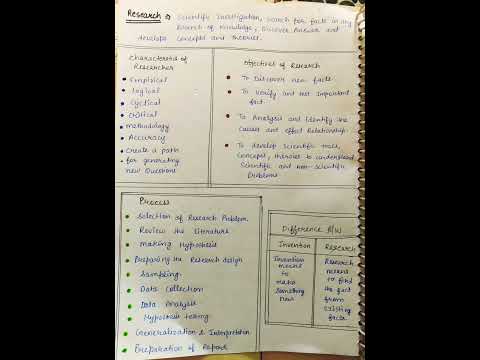 Research → Scientific Investigation, search for facts in any
Branch of Knowledge, Discover Answer and
develops Concepts and theories.
Characteristics of
Researcher
• Empirical
• logical
• Cyclical
• Critical
• methodology
• Accuracy
• Create a path
• for generating
new Questions
Objectives of Research
• To Discover new facts.
• To Verify and test Important
fact.
• To Analysis and Identify the
Causes and effect Relationship.
• To develop Scientific tools,
Concept, theories to understand
Scientific and non-scientific
Problems.
Process
• Selection of Research Problem.
• Review the Literature
• Making Hypothesis
• Preparing the Research design
• Sampling.
• Data Collection
• Data Analysis
• Hypothesis testing.
• Generalization & Interpretation
• Preparation of Report
Difference B/W
Invention
Invention
means
to
make
Something
new
Research
Research
means
to find
the fact
from
existing
facts.